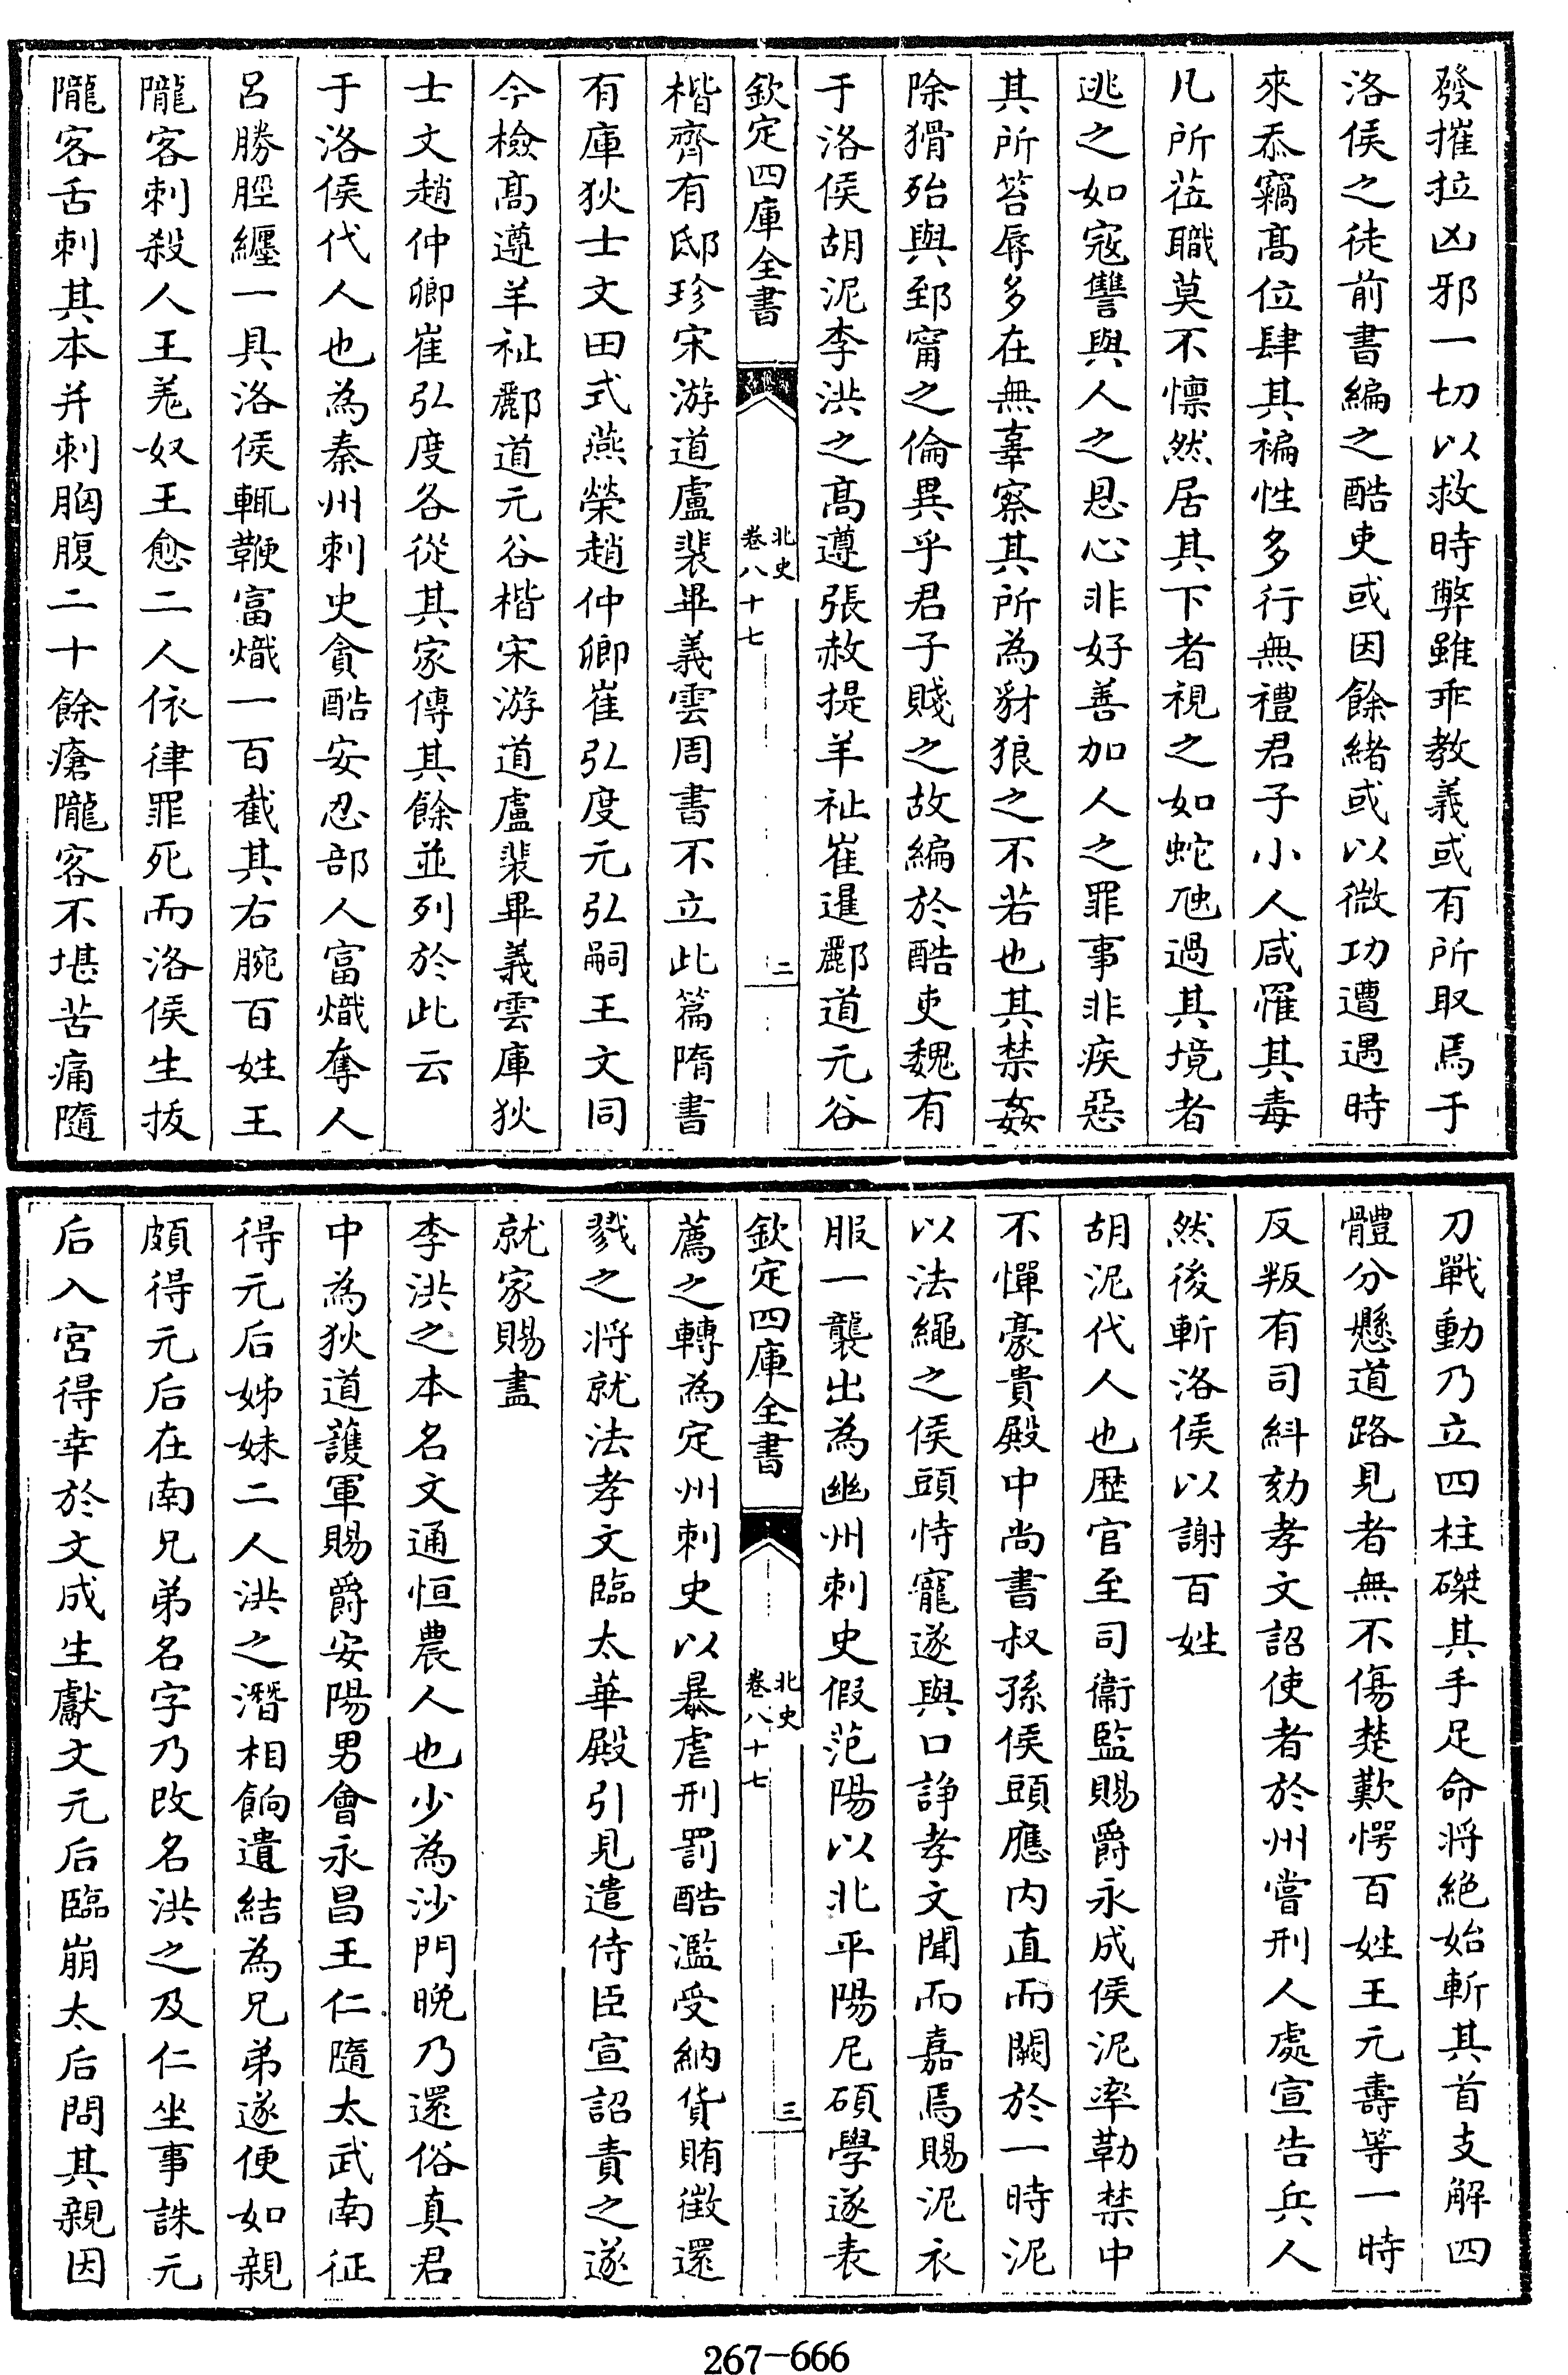 發摧拉凶邪一切以救時弊雖乖教義或有所取焉于
洛侯之徒前書編之酷吏或因餘緒或以微功遭遇時
來忝竊髙位肆其褊性多行無禮君子小人咸罹其毒
凡所莅職莫不懔然居其下者視之如蛇虺過其境者
逃之如寇讐與人之恩心非好善加人之罪事非疾惡
其所笞辱多在無辜察其所為豺狼之不若也其禁姦
除猾殆與郅甯之倫異乎君子賤之故編於酷吏魏有
于洛侯胡泥李洪之髙遵張赦提羊祉崔暹酈道元谷
欽定四庫全書
北史
卷八十七
二
楷齊有邸珍宋游道盧裴畢義雲周書不立此篇隋書
有庫狄士文田式燕榮趙仲卿崔弘度元弘嗣王文同
今檢髙遵羊祉酈道元谷楷宋游道盧裴畢義雲庫狄
士文趙仲卿崔弘度各從其家傳其餘並列於此云
于洛侯代人也為秦州刺史貪酷安忍部人富熾奪人
呂勝脛纒一具洛侯輒鞭富熾一百截其右腕百姓王
隴客刺殺人王羌奴王愈二人依律罪死而洛侯生拔
隴客舌刺其本并刺胸腹二十餘瘡隴客不堪苦痛隨
刀戰動乃立四柱磔其手足命將絶始斬其首支解四
體分懸道路見者無不傷楚歎愕百姓王元壽等一時
反叛有司糾劾孝文詔使者於州嘗刑人處宣告兵人
然後斬洛侯以謝百姓
胡泥代人也歴官至司衞監賜爵永成侯泥率勒禁中
不憚豪貴殿中尚書叔孫侯頭應内直而闕於一時泥
以法繩之侯頭恃寵遂與口諍孝文聞而嘉焉賜泥衣
服一襲出為幽州刺史假范陽以北平陽尼碩學遂表
欽定四庫全書
北史
卷八十七
三
薦之轉為定州刺史以暴虐刑罰酷濫受納貨賄徵還
戮之將就法孝文臨太華殿引見遣侍臣宣詔責之遂
就家賜盡
李洪之本名文通恒農人也少為沙門晩乃還俗真君
中為狄道護軍賜爵安陽男會永昌王仁隨太武南征
得元后姊妹二人洪之潛相餉遺結為兄弟遂便如親
頗得元后在南兄弟名字乃改名洪之及仁坐事誅元
后入宮得幸於文成生獻文元后臨崩太后問其親因
267-666